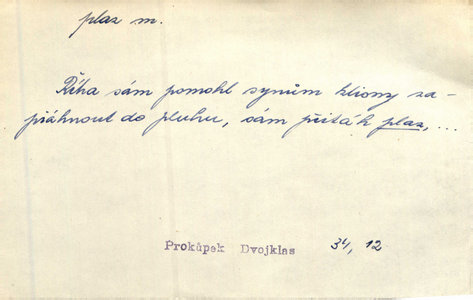 plaz m.
Říha sám pomohl synům kliony za-
přáhnout do pluhu, sám přiták plaz, ...
Prokůpek Dvojklas 34, 12